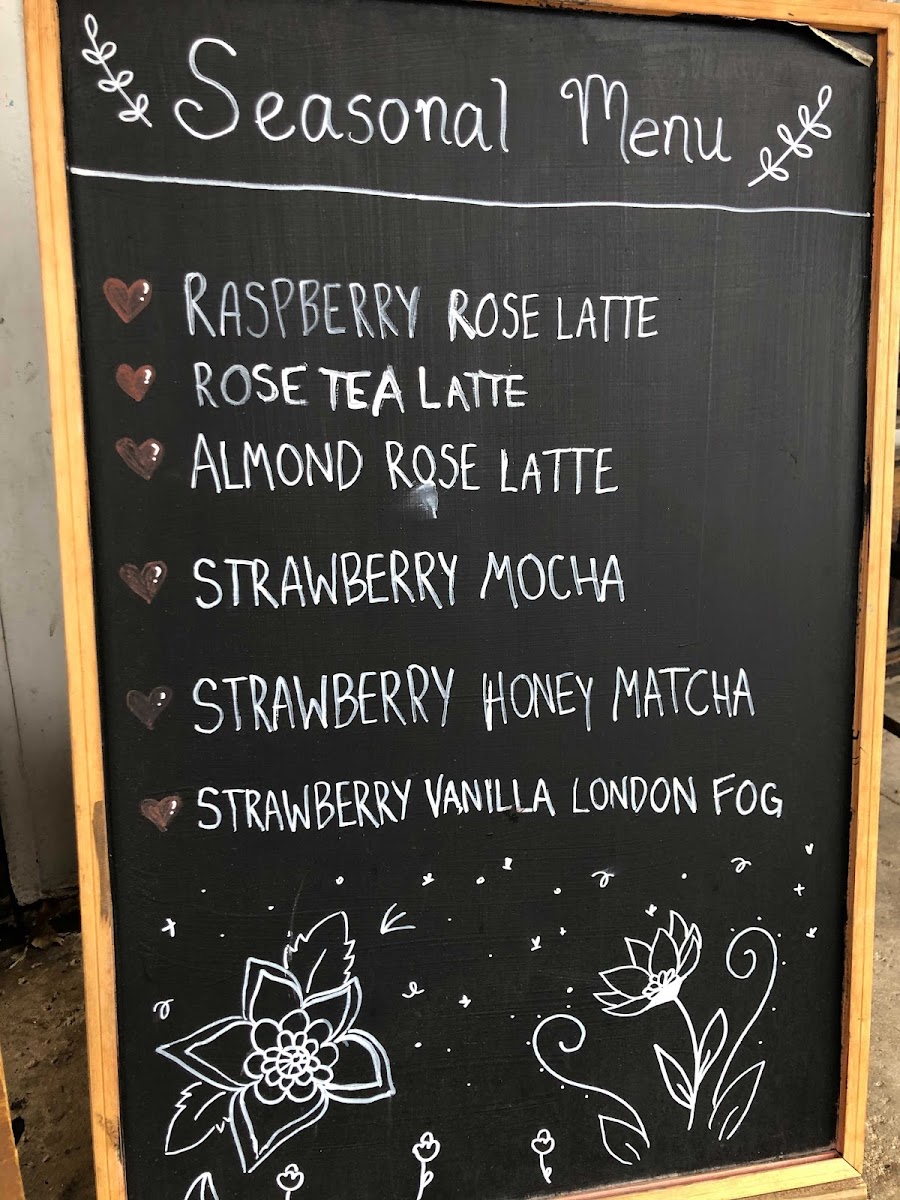 Seasonal Menu
RASPBERRY ROSE LATTE
ROSE TEA LATTE
ALMOND ROSE LATTE
STRAWBERRY MOCHA
STRAWBERRY HONEY MATCHA
STRAWBERRY VANILLA LONDON FOG